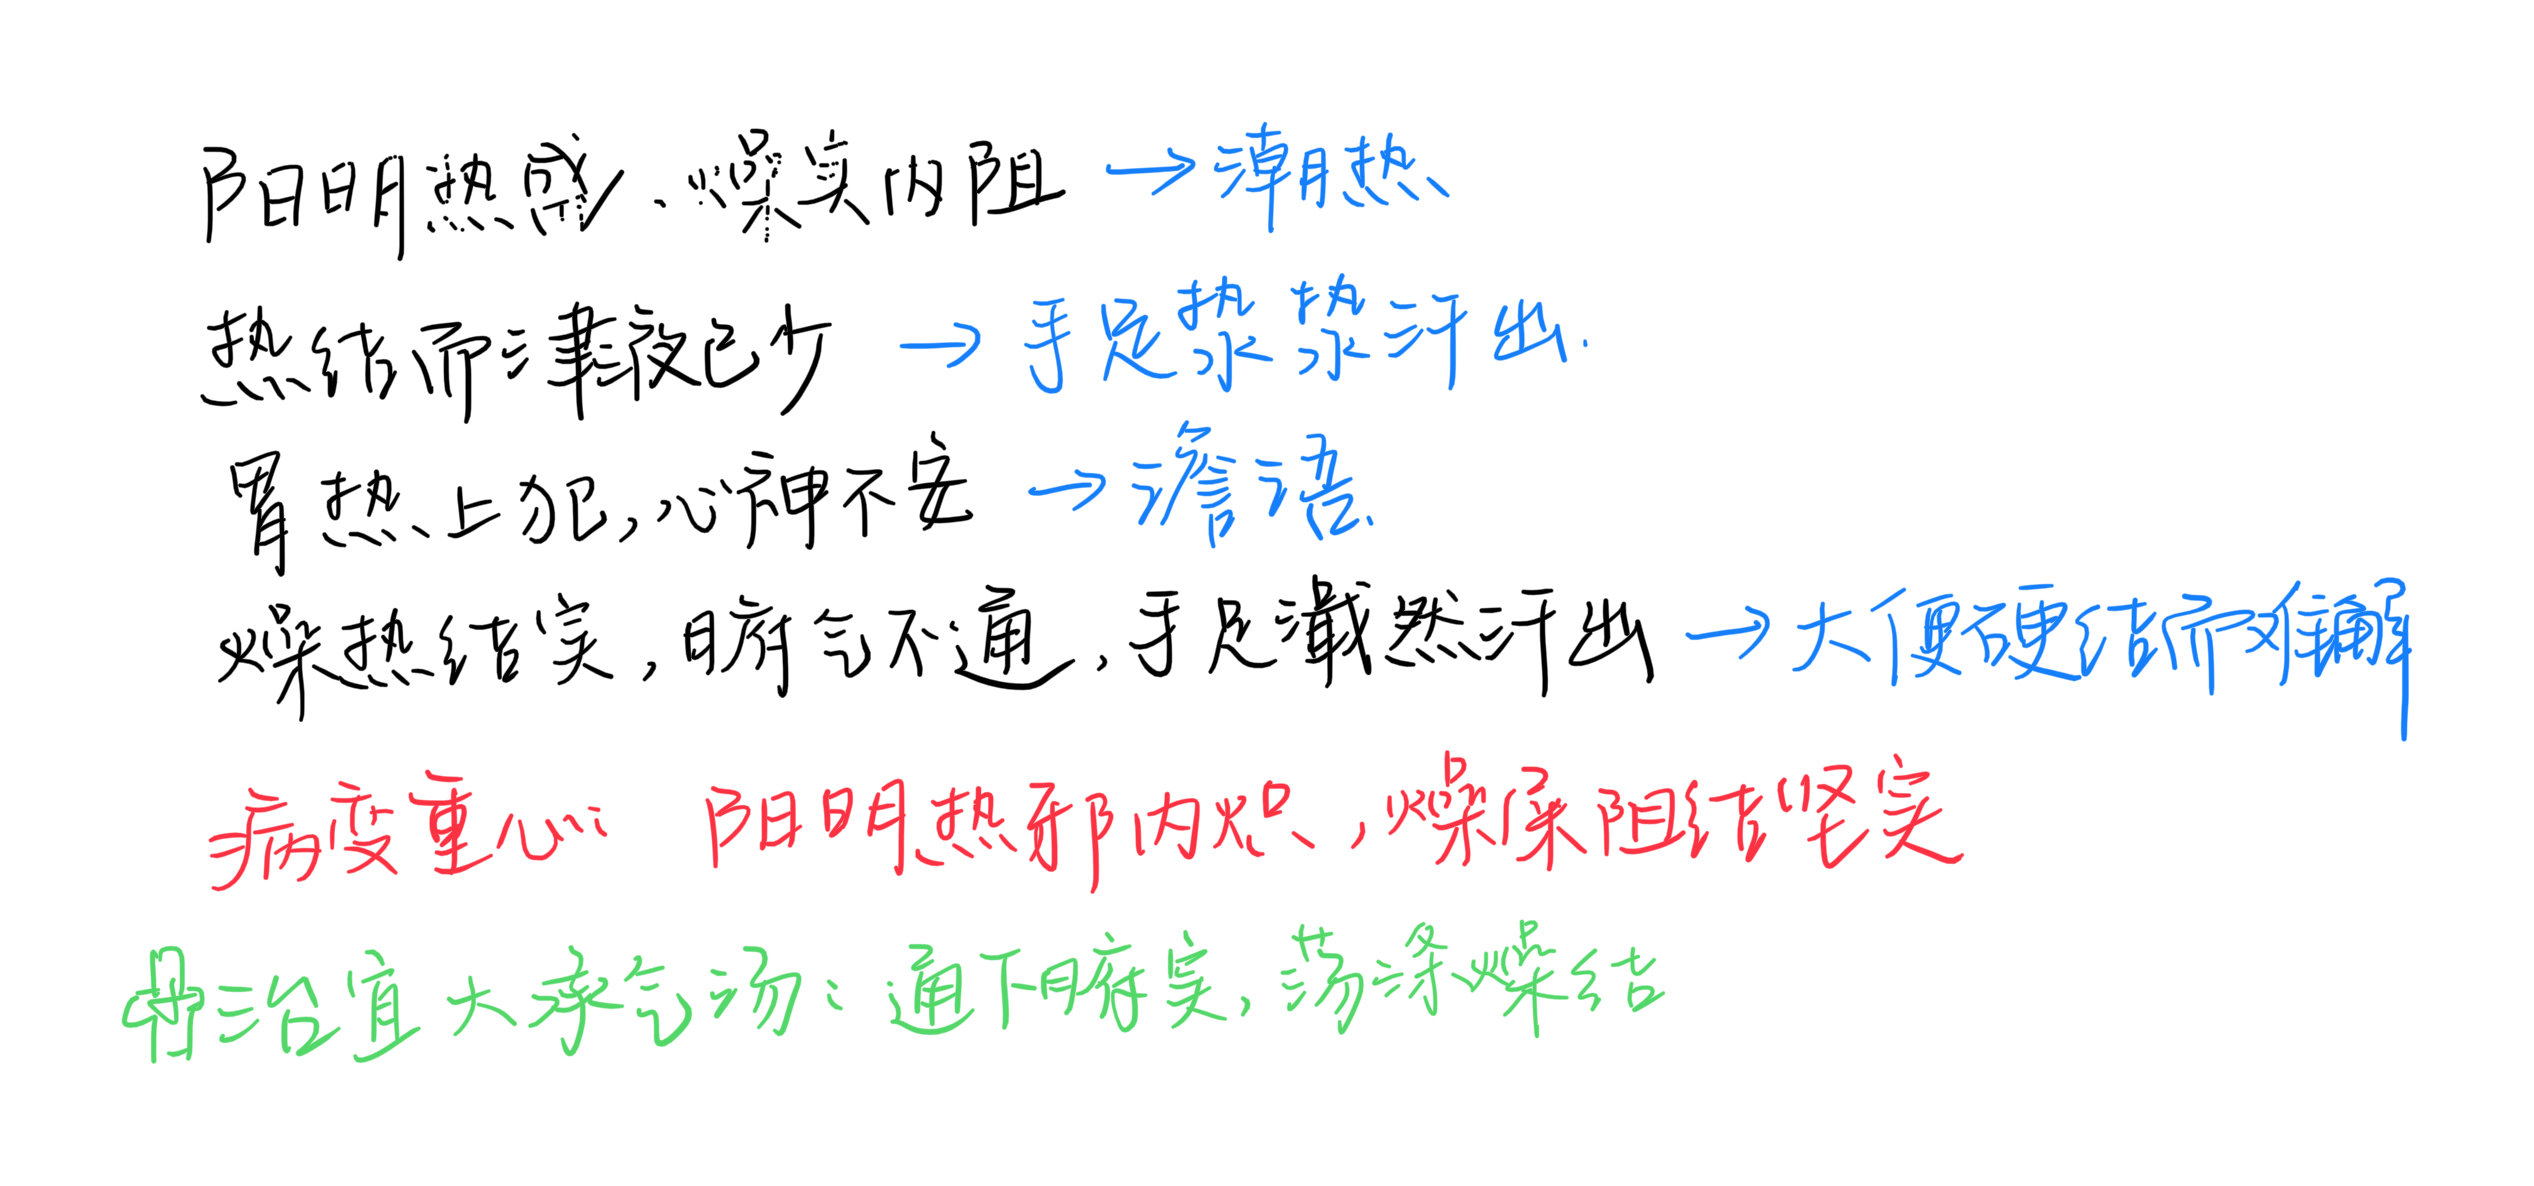 阳明热盛、燥实内阻 →潮热
热结而津液已少 →手足漐漐汗出.
胃热上犯,心神不安 →谵语.
燥热结实,腑气不通,手足濈然汗出 →大便硬结而难解
病变重心: 阳明热邪内炽,燥屎阻结坚实
治宜大承气汤:通下腑实,荡涤燥结